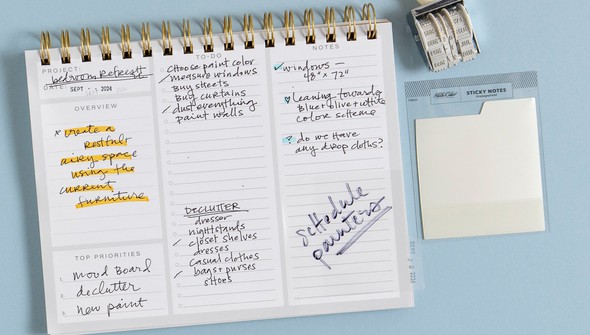 PROJECT:
bedroom refresh
DATE:
SEPT 2024
OVERVIEW
x create a
restful
airy space
using the
current
furniture
TOP PRIORITIES
mood board
declutter
new paint
TO-DO
choose paint color
measure windows
buy sheets
buy curtains
✓ dust everything
paint walls
DECLUTTER
dresser
nightstands
✓ closet shelves
dresses
casual clothes
✓ bags + purses
shoes
NOTES
✓ windows —
48" x 72"
♥ leaning towards
blue + olive + white
color scheme
? do we have
any drop cloths?
schedule
painters
STICKY NOTES